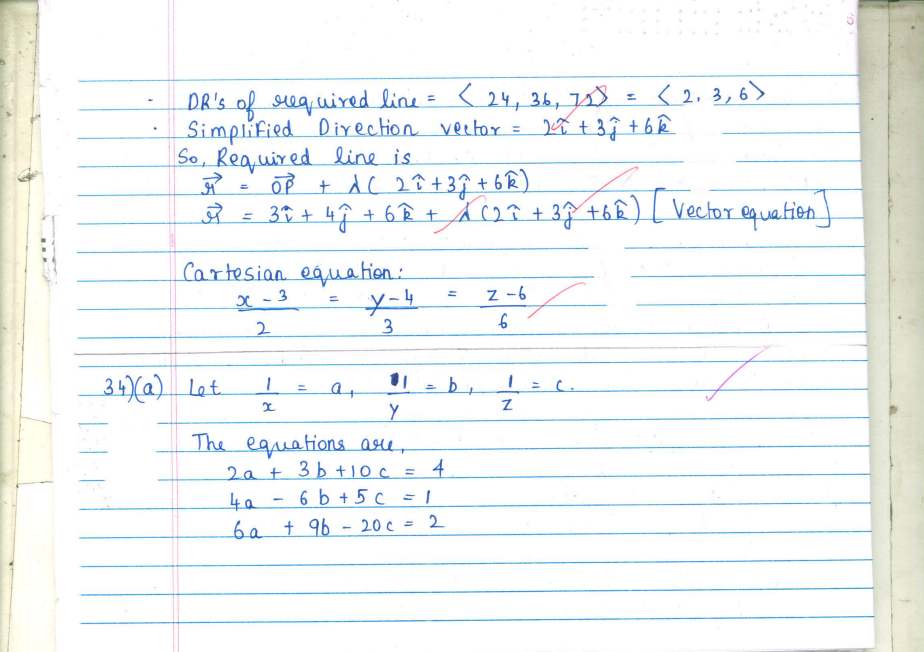 · DR's of required line = < 24, 36, 72> = < 2, 3, 6>
· Simplified Direction vector = 2î + 3ĵ + 6k̂
So, Required line is
r⃗ = OP⃗ + λ( 2î + 3ĵ + 6k̂)
r⃗ = 3î + 4ĵ + 6k̂ + λ (2î + 3ĵ + 6k̂) [Vector equation]
Cartesian equation:
x - 3 / 2 = y - 4 / 3 = z - 6 / 6
34)(a) Let 1/x = a, 1/y = b, 1/z = c.
The equations are,
2a + 3b + 10c = 4
4a - 6b + 5c = 1
6a + 9b - 20c = 2